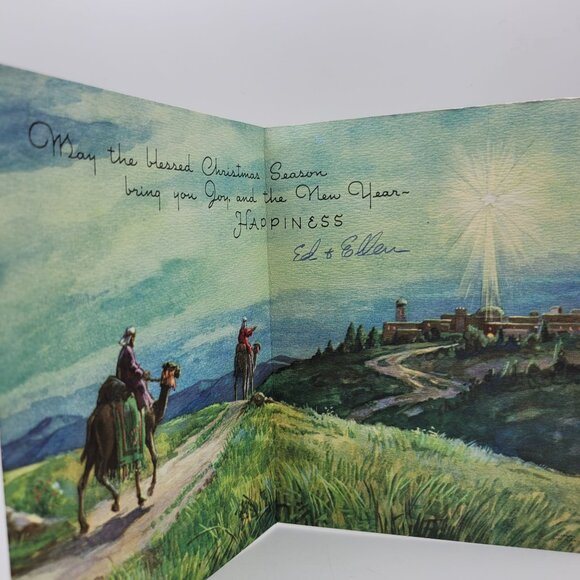 May the blessed Christmas Season
bring you Joy, and the New Year~
HAPPINESS
Ed & Ellen